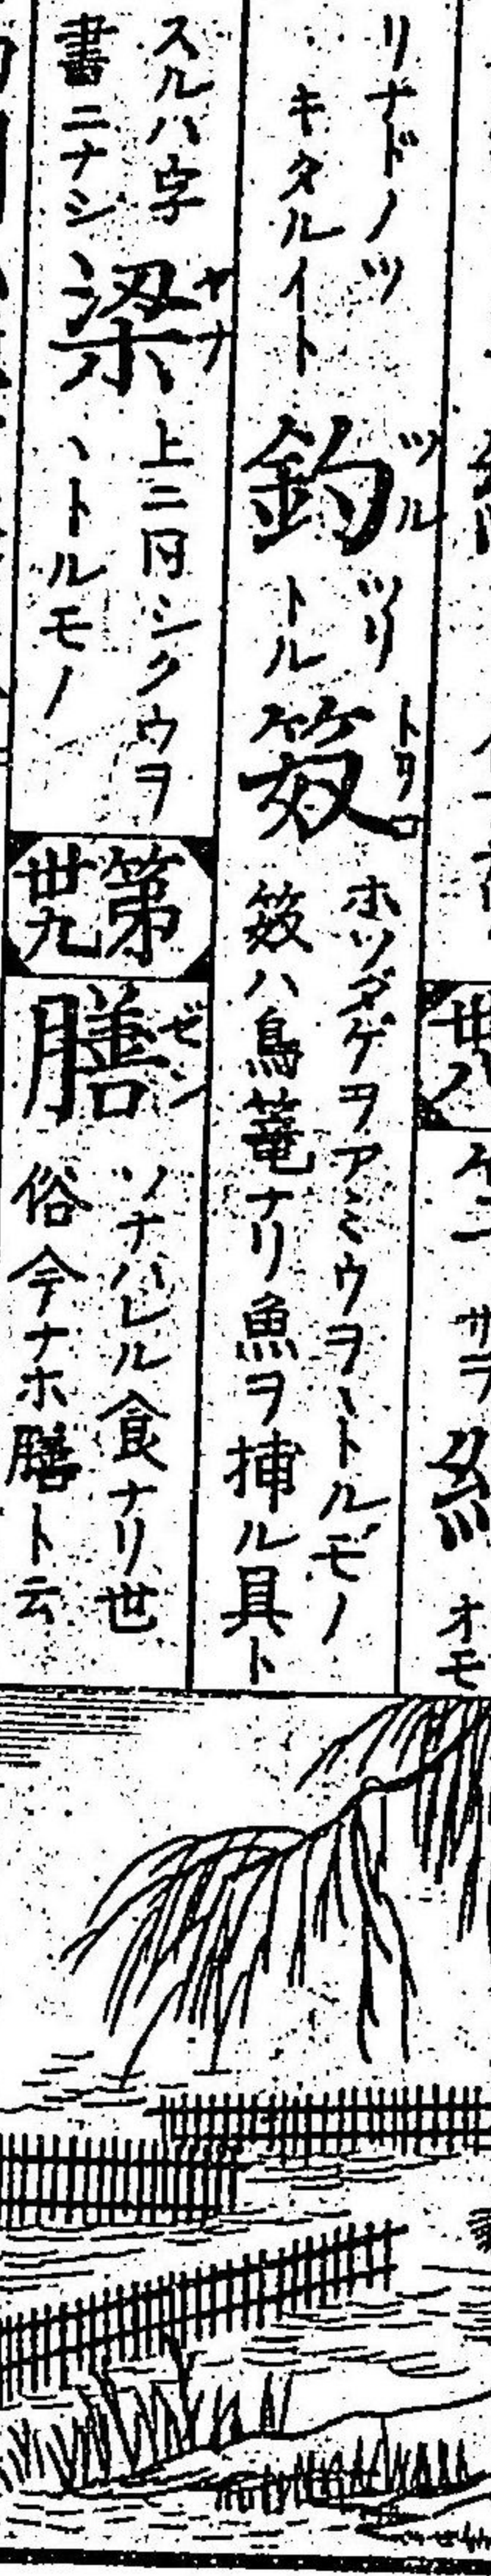 卅八
リナドノツ
キタルイト
釣
ツル
ツリ
トル
笯
トリロ
ホソダゲヲアミウヲヽトルモノ
笯ハ鳥篭ナリ魚ヲ捕ル具ト
スルハ字
書ニナシ
梁
ヤナ
上ニ同シクウヲ
ヽトルモノ
第
卅九
膳
ゼン
ソナハレル食ナリ世
俗今ナホ膳ト云